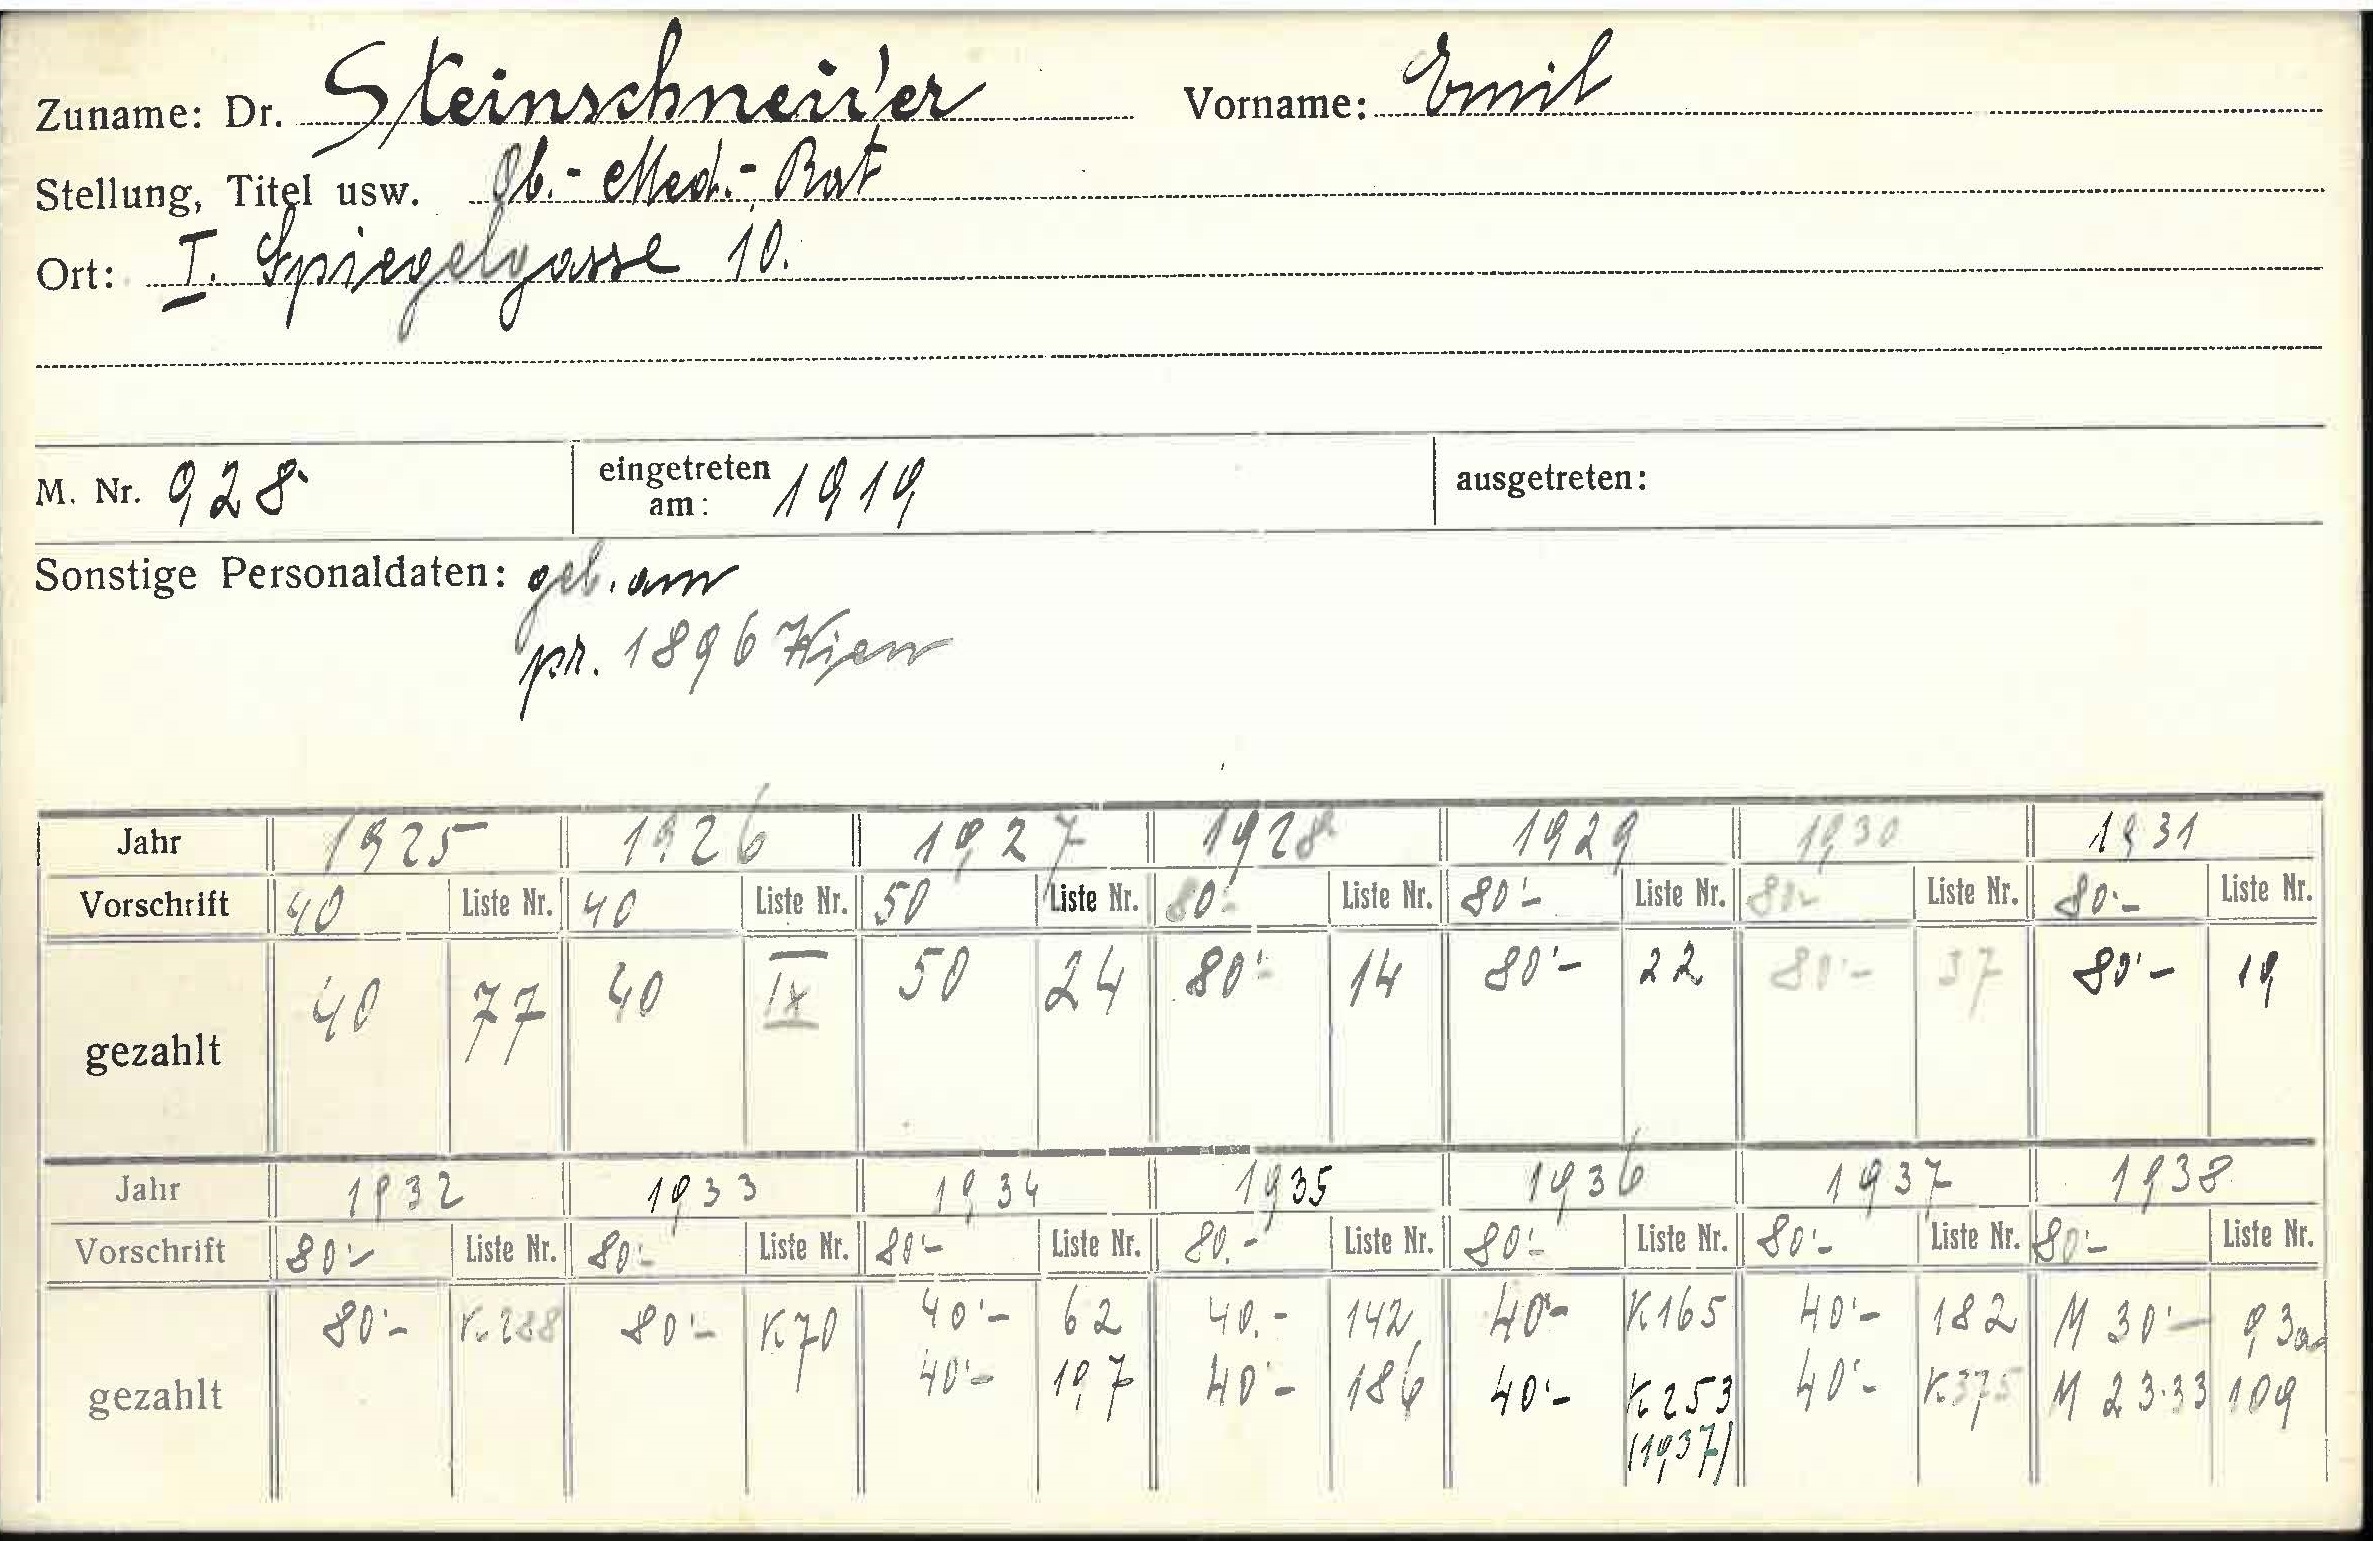 Zuname: Dr. Steinschneider Vorname: Emil
Stellung, Titel usw. Ob.- Med.- Rat
Ort: I. Spiegelgasse 10.
M. Nr. 928 eingetreten am: 1919 ausgetreten:
Sonstige Personaldaten: geb. am
pr. 1896 Wien
Jahr 1925 1926 1927 1928 1929 1930 1931
Vorschrift 40 Liste Nr. 40 Liste Nr. 50 Liste Nr. 80'- Liste Nr. 80'- Liste Nr. 80'- Liste Nr. 80'- Liste Nr.
gezahlt 40 77 40 IX 50 24 80'- 14 80'- 22 80'- 37 80'- 19
Jahr 1932 1933 1934 1935 1936 1937 1938
Vorschrift 80'- Liste Nr. 80'- Liste Nr. 80'- Liste Nr. 80.- Liste Nr. 80'- Liste Nr. 80'- Liste Nr. 80'- Liste Nr.
80'- K. 288 80'- K 70 40'- 62 40.- 142 40'- K 165 40'- 182 M 30'- 93a
gezahlt 40'- 197 40'- 186 40'- K 253 40'- K 375 M 23.33 109
(1937)